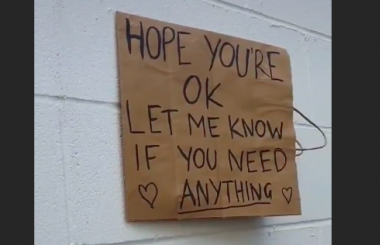 HOPE YOU'RE
OK
LET ME KNOW
IF YOU NEED
ANYTHING